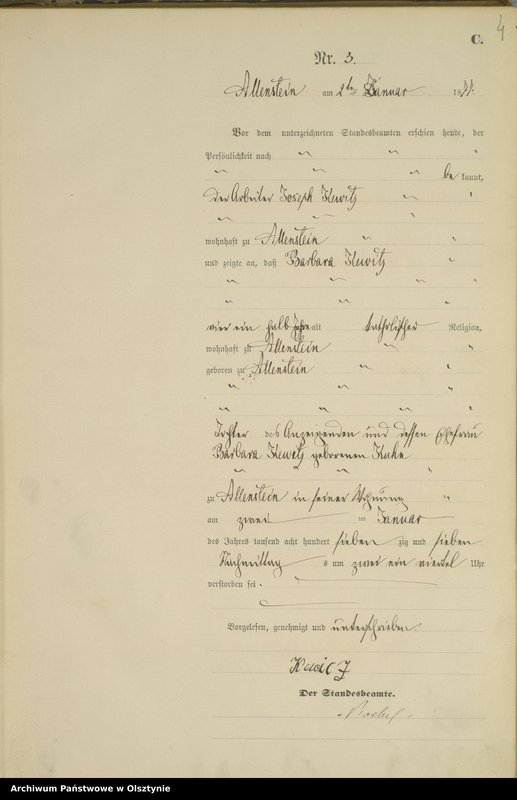 4
C.
Nr. 3.
Allenstein am 2ten Januar 1877
Vor dem unterzeichneten Standesbeamten erschien heute, der
Persönlichkeit nach
be kannt,
der Arbeiter Joseph
wohnhaft zu Allenstein
und zeigte an, daß Barbara
vier ein halb Jahr alt katholischer Religion,
wohnhaft zu Allenstein
geboren zu Allenstein
Tochter des Anzeigenden und dessen Ehefrau
Barbara geborenen
zu Allenstein in seiner Wohnung
am zwei ten Januar
des Jahres tausend acht hundert sieben zig und sieben
Nachmittag s um zwei ein viertel Uhr
verstorben sei.
Vorgelesen, genehmigt und unterschrieben
Der Standesbeamte.
Archiwum Państwowe w Olsztynie